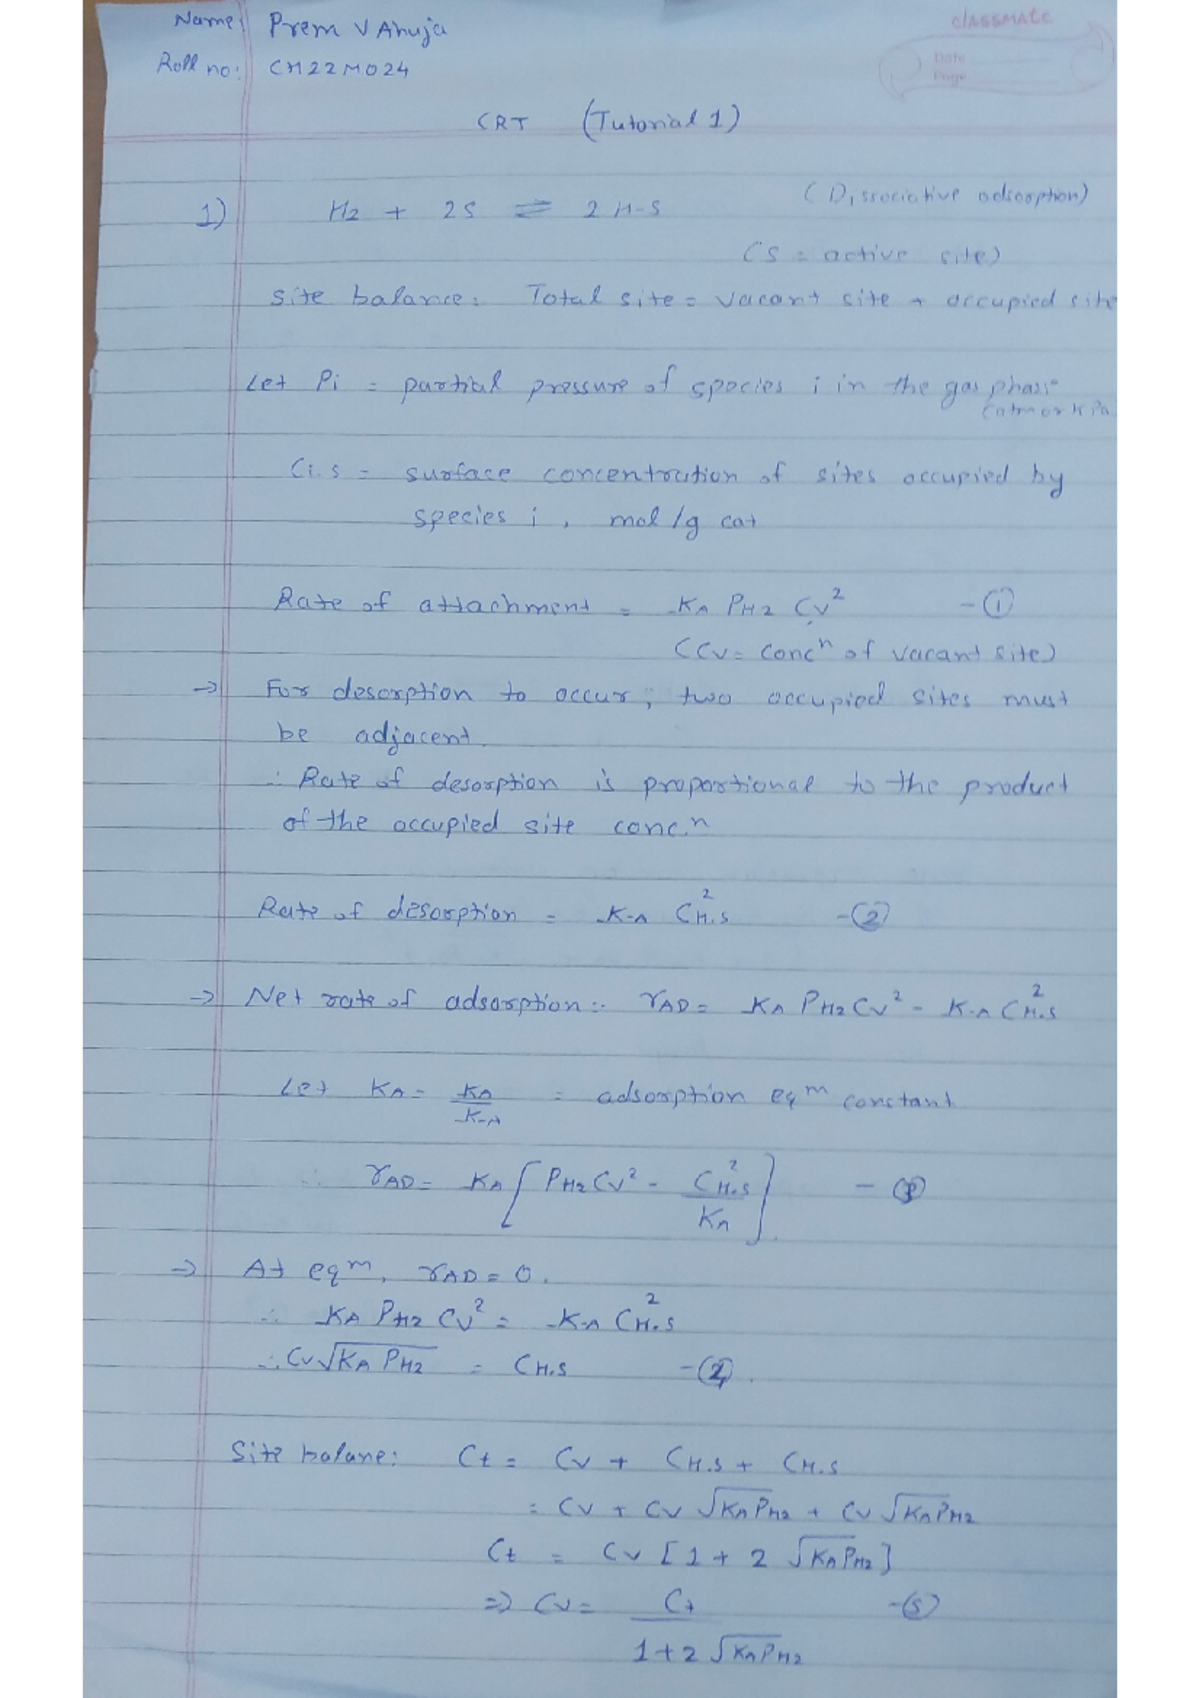 Name: Prem V Ahuja
classmate
Date
Page
Roll no: CH22M024
CRT (Tutorial 1)
1) H2 + 2S ⇌ 2 H-S (Dissociative adsorption)
(S = active site)
Site balance: Total site = vacant site + occupied site
Let Pi = partial pressure of species i in the gas phase
(atm or kPa
Ci.s = surface concentration of sites occupied by
species i, mol/g cat
Rate of attachment = kA PH2 Cv² -①
(Cv = concⁿ of vacant site)
→ For desorption to occur, two occupied sites must
be adjacent.
∴ Rate of desorption is proportional to the product
of the occupied site conc.n
Rate of desorption = k-A C²H.S -②
→ Net rate of adsorption:- rAD = kA PH2 Cv² - k-A C²H.S
Let KA = kA/k-A = adsorption eqm constant
∴ rAD = kA [PH2 Cv² - C²H.S/KA] - ③
→ At eqm, rAD = 0.
∴ kA PH2 Cv² = k-A C²H.S
∴ Cv√KA PH2 = CH.S -④.
Site balane: Ct = Cv + CH.S + CH.S
= Cv + Cv √KAPH2 + Cv √KAPH2
Ct = Cv [1 + 2 √KAPH2]
⇒ Cv = Ct/1+2 √KAPH2 -⑤